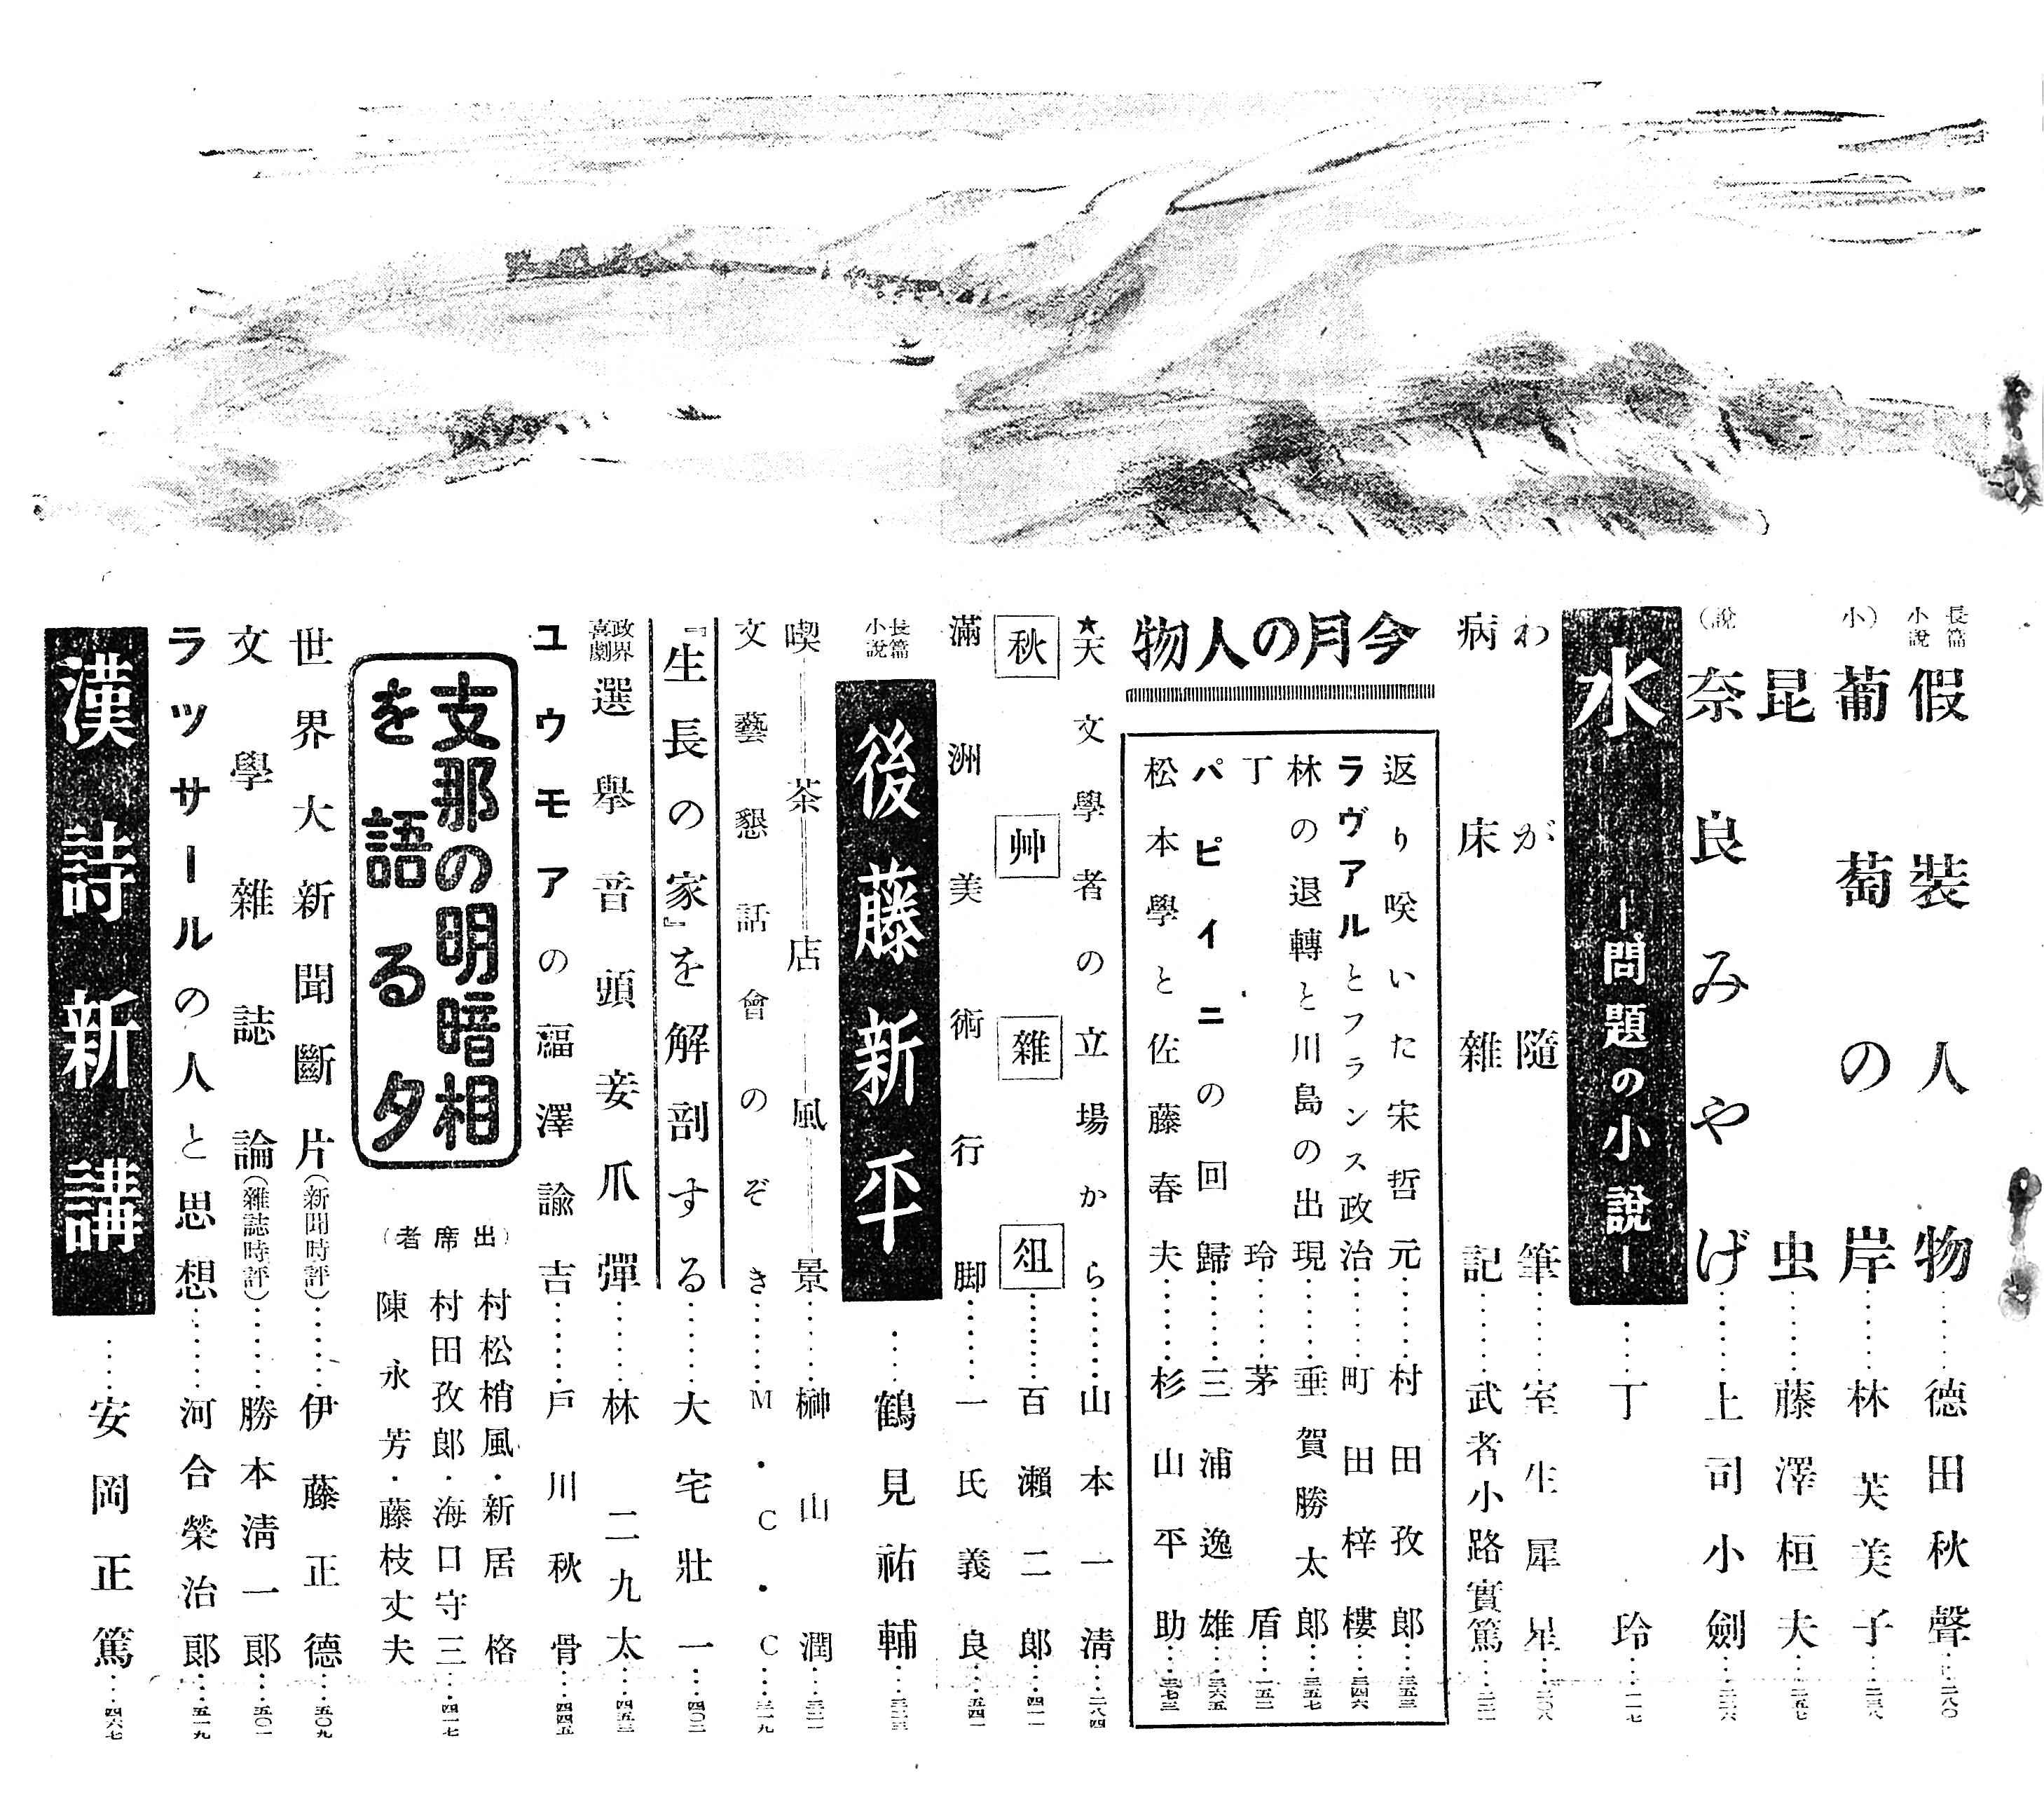 長篇小說 假裝人物……德田秋聲…二八〇
（小 葡萄の岸……林芙美子…二三八
昆虫……藤澤桓夫…二五七
說） 奈良みやげ……上司小劍…二二六
水 ―問題の小說―……丁玲…一一七
わが隨筆……室生犀星…二〇八
病床雜記……武者小路實篤…二二一
今月の人物
返り咲いた宋哲元……村田孜郎…三五三
ラヴアルとフランス政治……町田梓樓…三四六
林の退轉と川島の出現……垂賀勝太郎…三五七
丁玲……茅盾…一五二
パピイニの回歸……三浦逸雄…三六五
松本學と佐藤春夫……杉山平助…三七三
★天文學者の立場から……山本一淸…二八四
秋艸雜俎……百瀨二郎…四一一
滿洲美術行脚……一氏義良…五四一
長篇小說 後藤新平……鶴見祐輔…三三三
喫茶店風景……榊山潤…三二一
文藝懇話會のぞき……M・C・C…三一九
『生長の家』を解剖する……大宅壯一…四〇二
政界喜劇 選擧音頭妾爪彈……林二九太…四五三
ユウモアの福澤諭吉……戸川秋骨…四四五
支那の明暗相を語る夕
（出席者）
村松梢風・新居格
村田孜郎・海口守三…四一七
陳永芳・藤枝丈夫
世界大新聞斷片（新聞時評）……伊藤正德…五〇九
文學雜誌論（雜誌時評）……勝本淸一郎…五〇一
ラツサールの人と思想……河合榮治郎…五一九
漢詩新講……安岡正篤…四六七